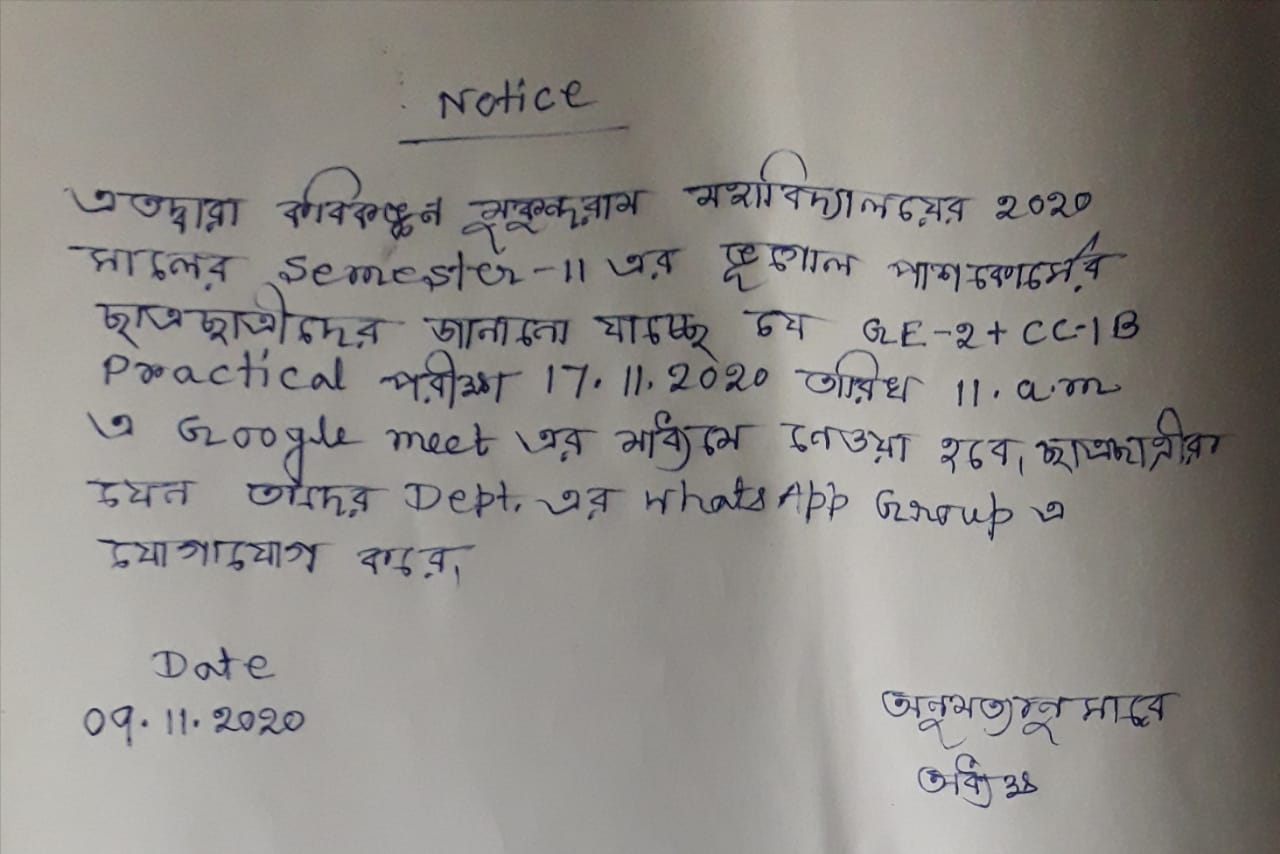 Notice
এতদ্বারা কবিকঙ্কন মুকুন্দরাম মহাবিদ্যালয়ের 2020
সালের Semester-11 এর ভূগোল পাশকোর্সের
ছাত্রছাত্রীদের জানানো যাচ্ছে যে GE-2+CC-1B
Practical পরীক্ষা 17.11.2020 তারিখ 11.a.m
এ Google meet এর মাধ্যমে নেওয়া হবে। ছাত্রছাত্রীরা
যেন তাদের Dept. এর WhatsApp Group এ
যোগাযোগ করে।
Date
09.11.2020
অনুমত্যনুসারে
অধ্যক্ষ